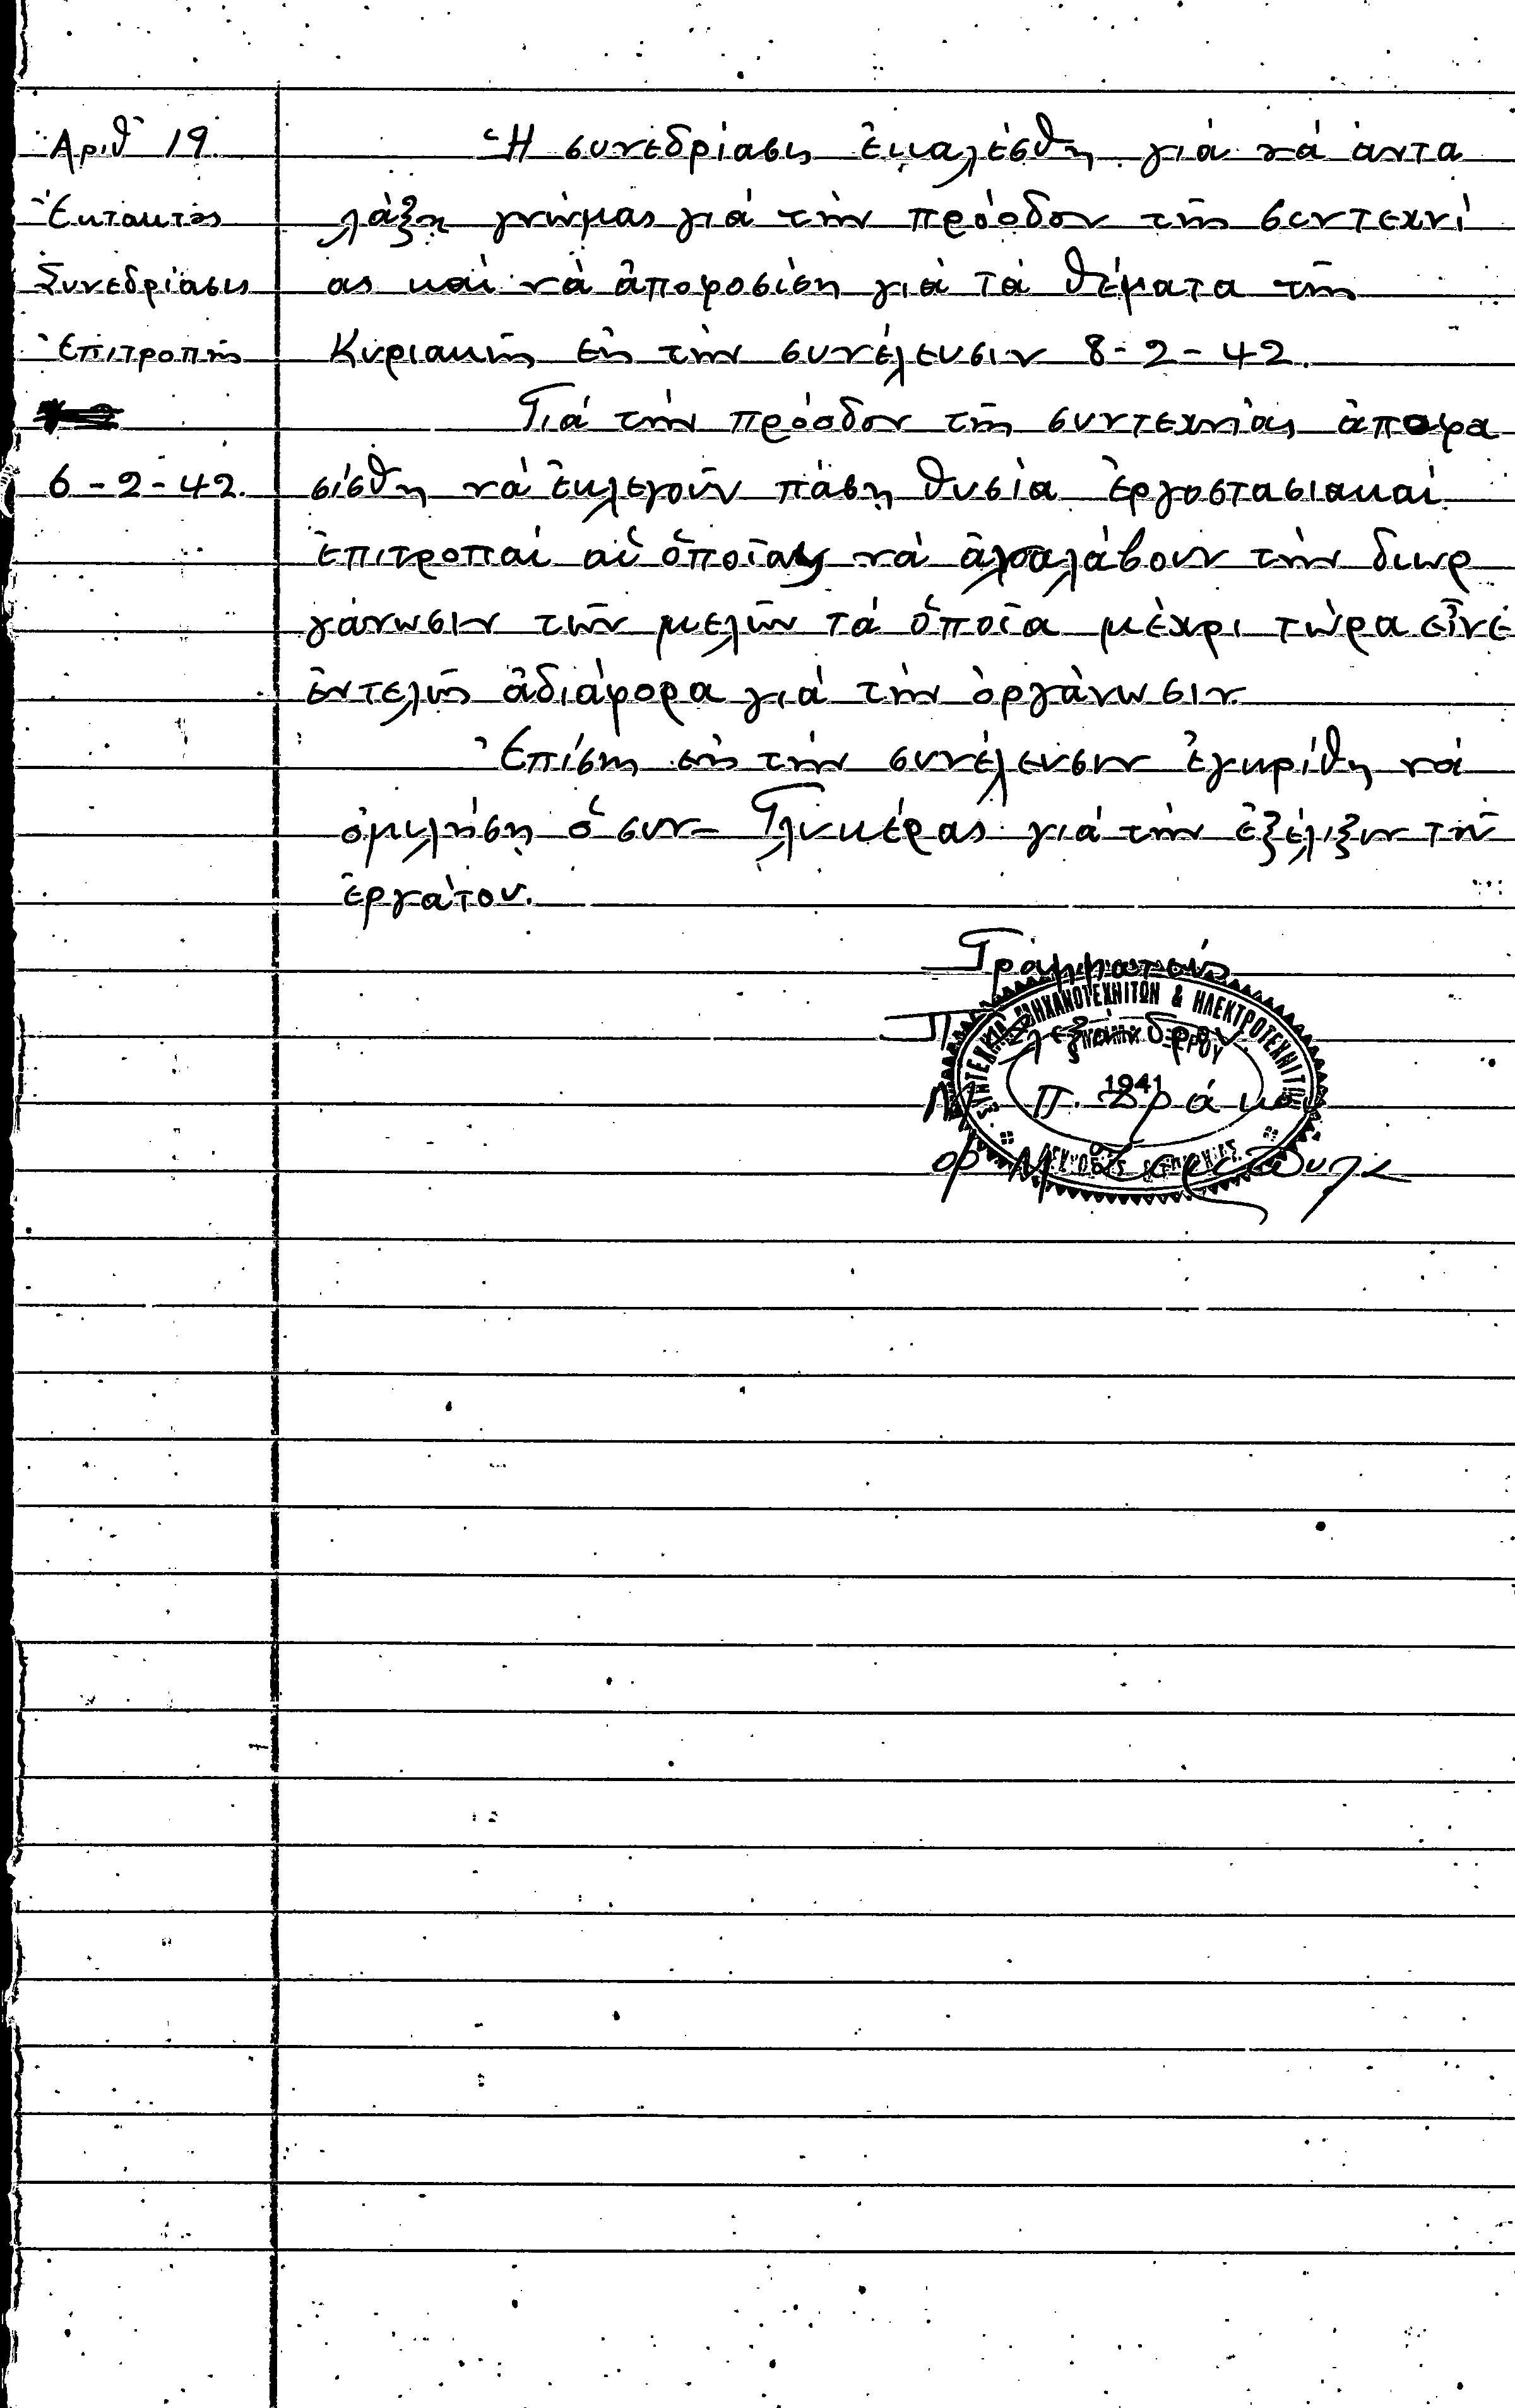 Ἀριθ 19.
Ἔκτακτος
Συνεδρίασις
Ἐπιτροπῆς
6-2-42.
Ἡ συνεδρίασις ἐκαλέσθη γιά νά ἀντα
λάξη γνώμας γιά τήν πρόοδον τῆς συντεχνί
ας καί νά ἀποφοσίση γιά τά θέματα τῆς
Κυριακῆς εἰς τήν συνέλευσιν 8-2-42.
Γιά τήν πρόοδον τῆς συντεχνίας ἀποφα
σίσθη νά ἐκλεγοῦν πάση θυσία ἐργοστασιακαί
ἐπιτροπαί αἱ ὁποῖαι νά τήν διωρ
γάνωσιν τῶν μελῶν τά ὁποῖα μέχρι τώρα εἶνε
ἐντελῶς ἀδιάφορα γιά τήν ὀργάνωσιν.
Ἐπίσης εἰς τήν συνέλευσιν ἐγκρίθη νά
ὁμιλήση ὁ συν- Γλυκέρας γιά τήν ἐξέλιξιν τοῦ
ἐργάτου.
Γραμματεύς
ΣΥΝΤΕΧΝΙΑ ΜΗΧΑΝΟΤΕΧΝΙΤΩΝ & ΗΛΕΚΤΡΟΤΕΧΝΙΤΩΝ
Π. Ἀλεξάνδρου.
1941
Π. Δράκου